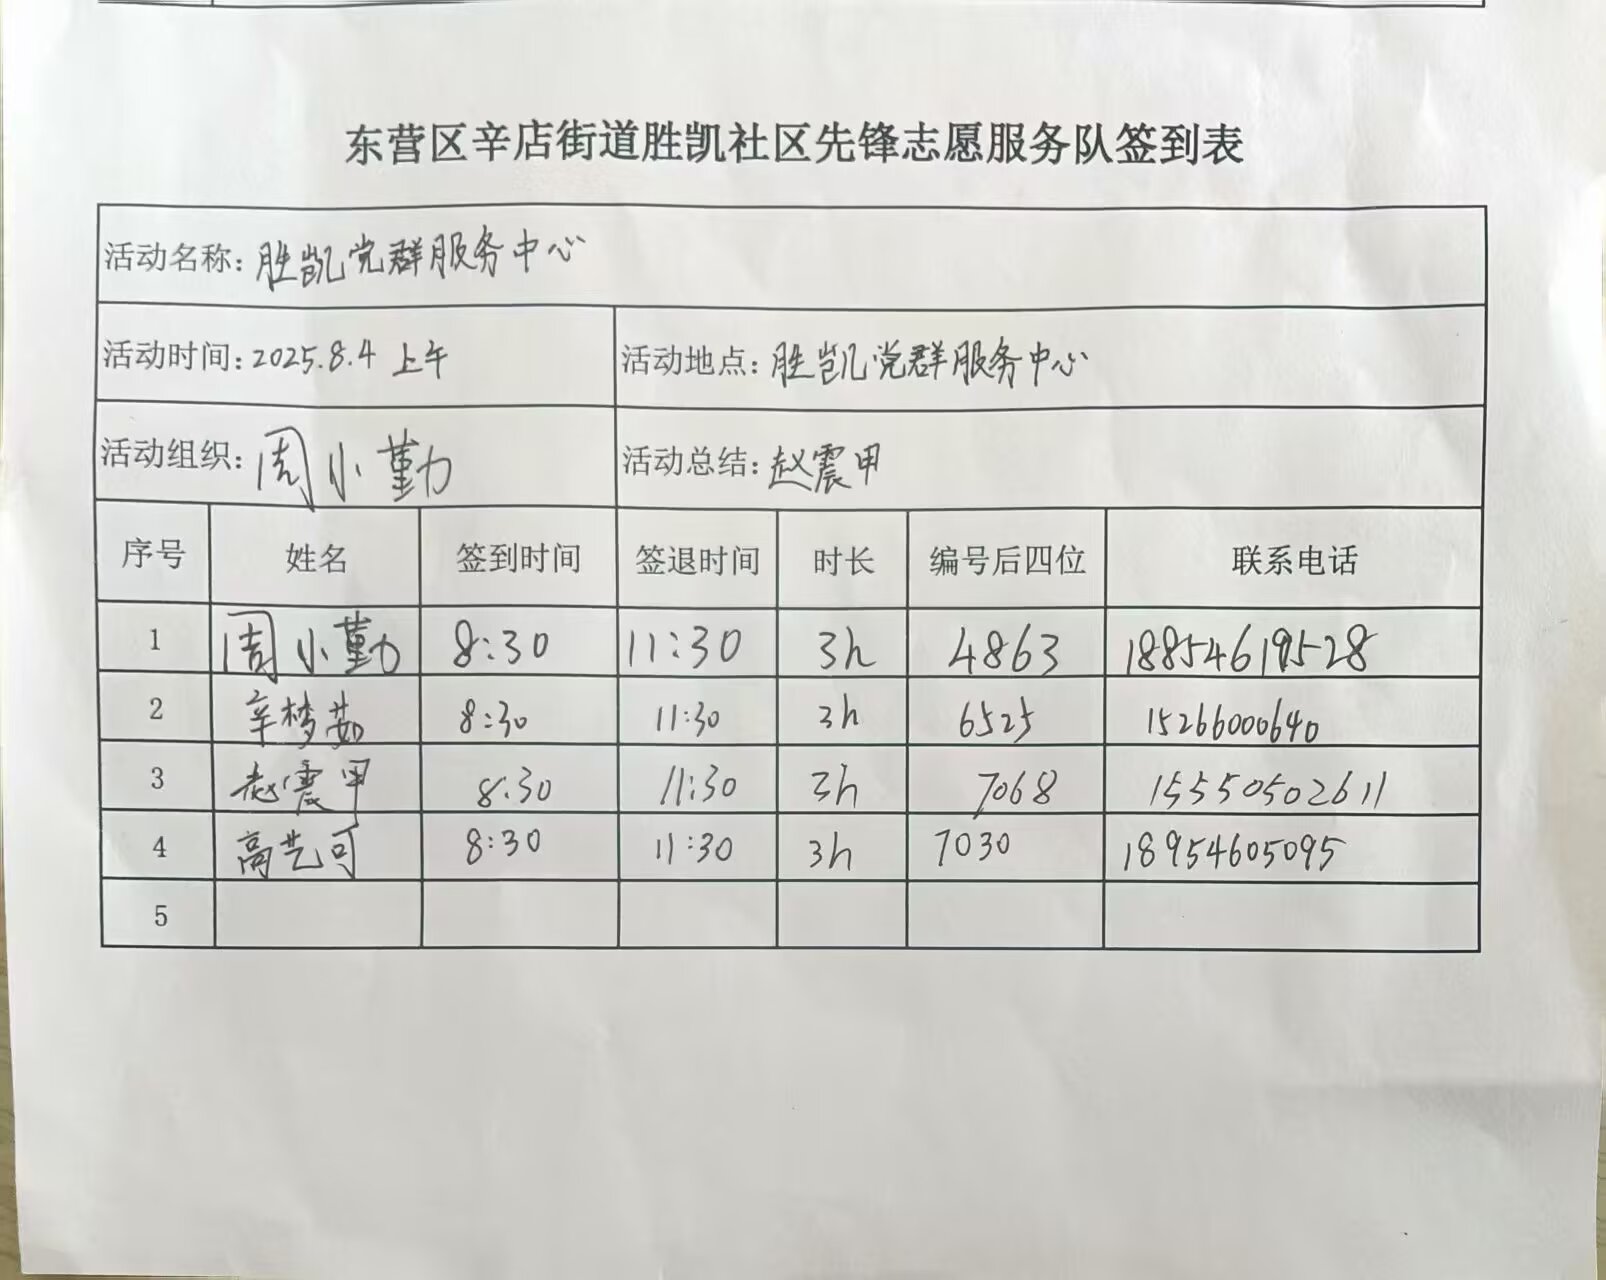 东营区辛店街道胜凯社区先锋志愿服务队签到表
活动名称: 胜凯党群服务中心
活动时间: 2025.8.4 上午 活动地点: 胜凯党群服务中心
活动组织: 周小勤 活动总结: 赵震甲
序号 姓名 签到时间 签退时间 时长 编号后四位 联系电话
1 周小勤 8:30 11:30 3h 4863 18854619528
2 辛梦茹 8:30 11:30 3h 6525 15266000640
3 赵震甲 8:30 11:30 3h 7068 15550502611
4 高艺可 8:30 11:30 3h 7030 18954605095
5